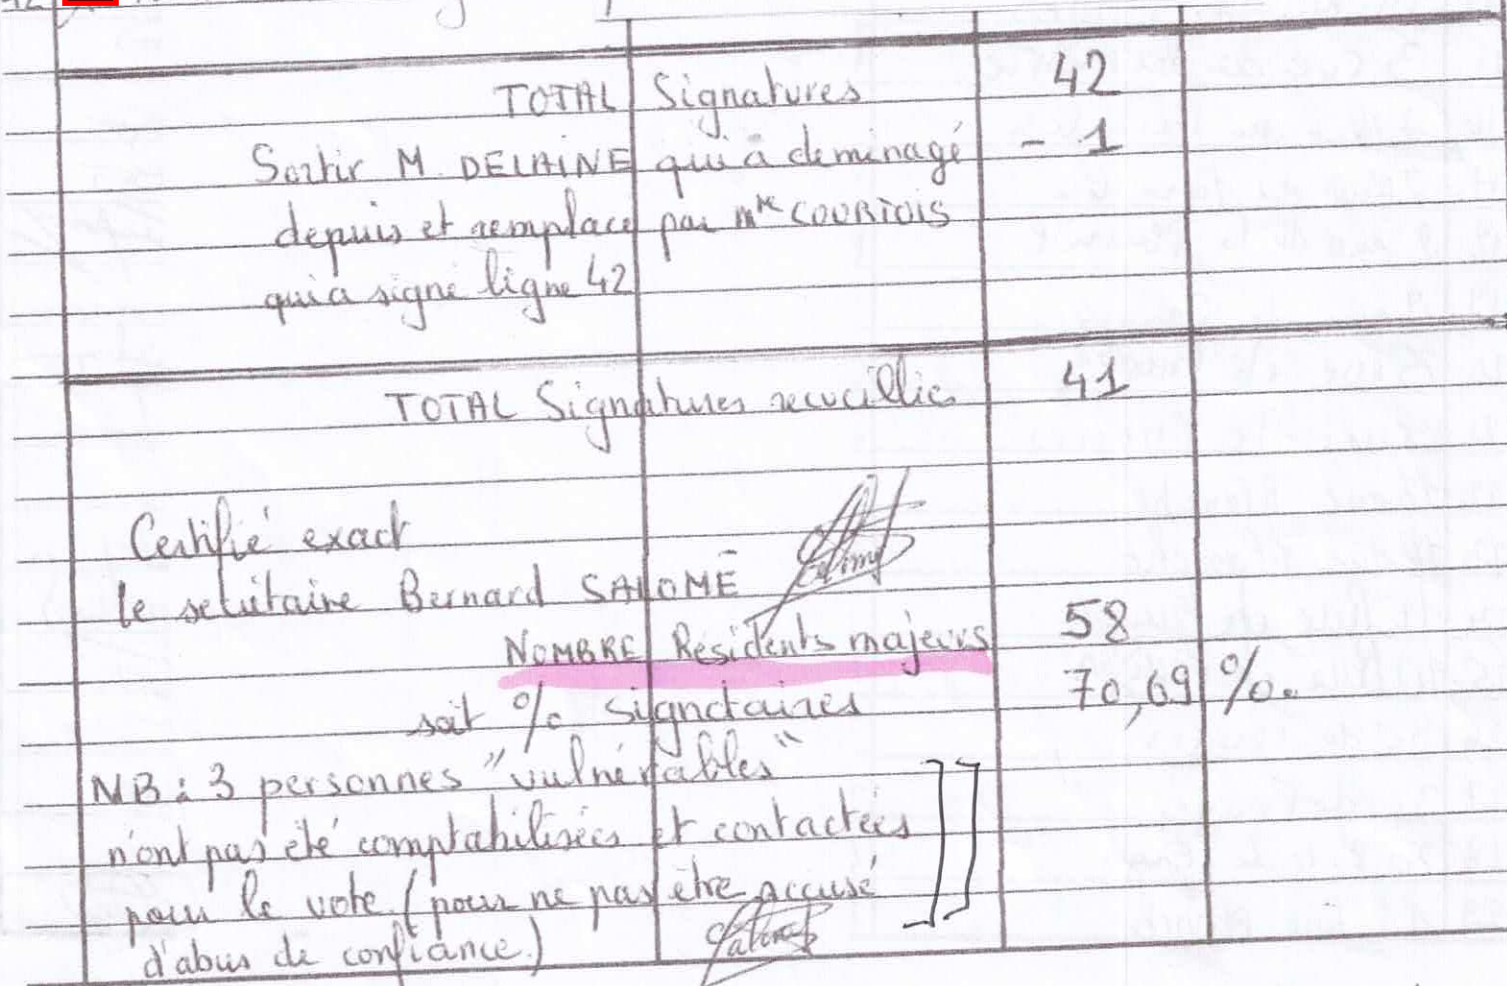 TOTAL Signatures 42
Sortir M. DELAINE qui a deminagé - 1
depuis et remplace par Mme COURTOIS
qui a signe ligne 42
TOTAL Signatures recueillies 41
Certifié exact
le secrétaire Bernard SALOMÉ
NOMBRE Résidents majeurs 58
soit % signataires 70,69 %.
NB : 3 personnes "vulnérables"
n'ont pas été comptabilisées et contactées
pour le vote (pour ne pas être accusé
d'abus de confiance.)